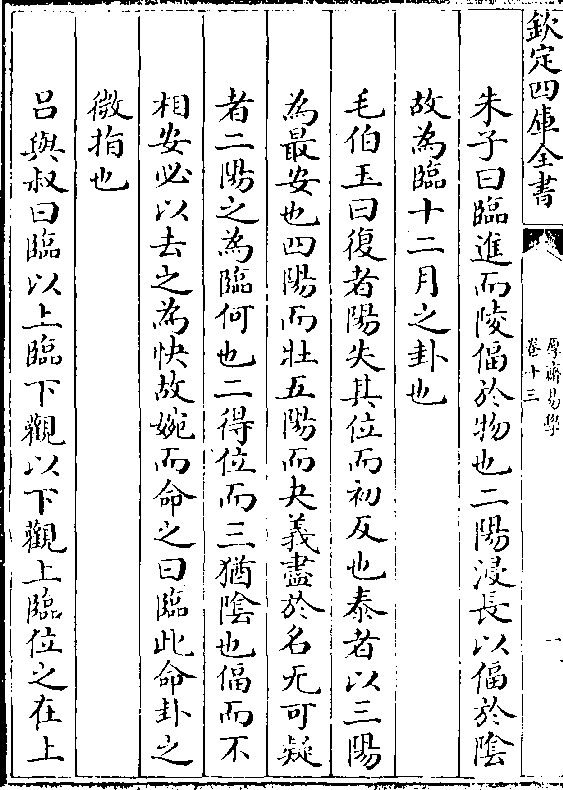 欽定四庫全書
厚齋易學
卷十三
一
朱子曰臨進而陵偪於物也二陽浸長以偪於陰
故為臨十二月之卦也
毛伯玉曰復者陽失其位而初反也泰者以三陽
為最安也四陽而壯五陽而夬義盡於名无可疑
者二陽之為臨何也二得位而三猶陰也偪而不
相安必以去之為快故婉而命之曰臨此命卦之
微指也
呂與叔曰臨以上臨下觀以下觀上臨位之在上